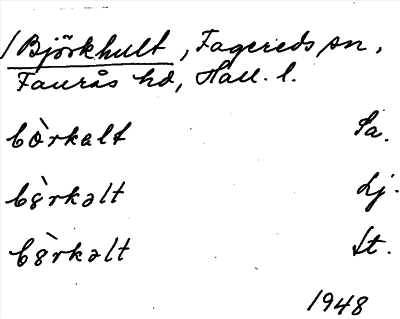 / Björkhult, Fagereds sn,
Faurås hd, Hall. l.
bò̱rkalt Sa.
bö̀rkəlt Lj.
bö̀rkəlt St.
1948